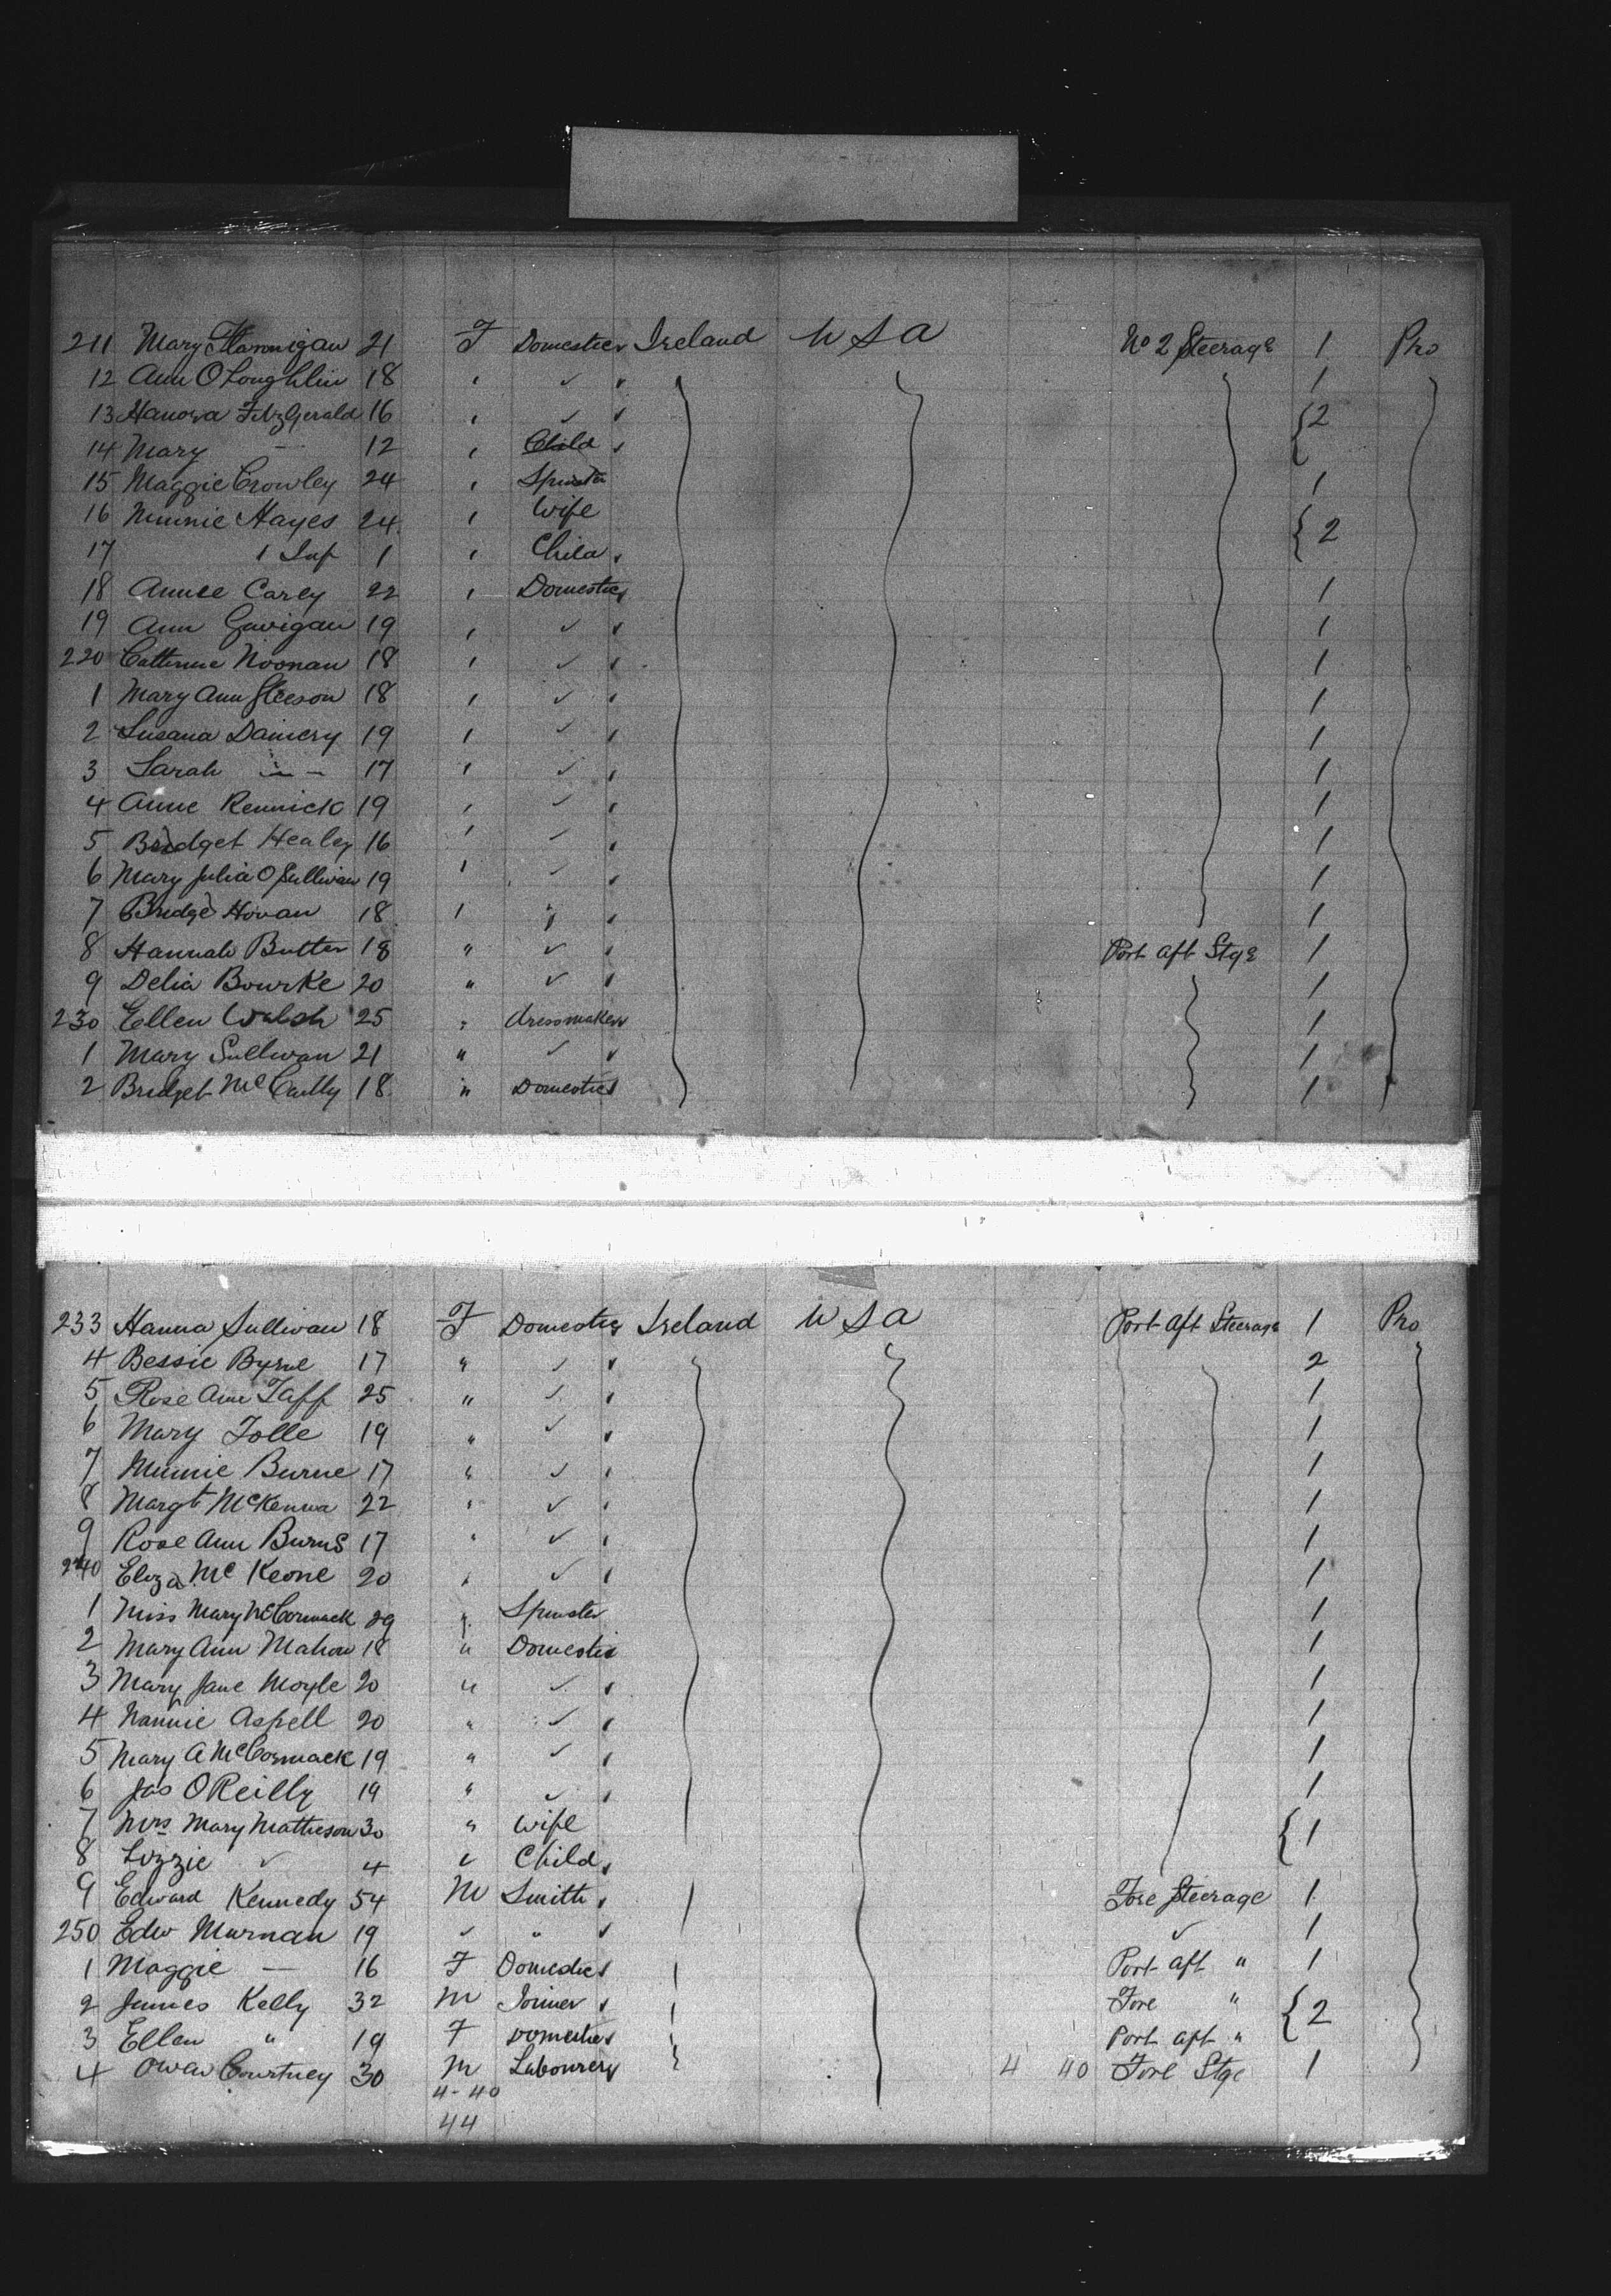 211 Mary Flannigan 21 F Domestic Ireland U S A No 2 Steerage 1 Pro
12 Ann O Loughlin 18 ✓ 1
13 Hanora FitzGerald 16 ✓ { 2
14 Mary — 12 Child
15 Maggie Crowley 24 Spinster 1
16 Minnie Hayes 24 Wife { 2
17 1 Inf 1 Child
18 Annie Carey 22 Domestic 1
19 Ann Gavigan 19 ✓ 1
220 Catherine Noonan 18 ✓ 1
1 Mary Ann Gleeson 18 ✓ 1
2 Susana Damery 19 ✓ 1
3 Sarah — 17 ✓ 1
4 Anne Rennick 19 ✓ 1
5 Bridget Healey 16 ✓ 1
6 Mary Julia O Sullivan 19 ✓ 1
7 Bridget Horan 18 " 1
8 Hannah Butler 18 " ✓ Port aft Stge 1
9 Delia Bourke 20 " ✓ 1
230 Ellen Walsh 25 " dressmaker 1
1 Mary Sullivan 21 " ✓ 1
2 Bridget McCaully 18 " Domestic 1
233 Hanna Sullivan 18 F Domestic Ireland U S A Port Aft Steerage 1 Pro
4 Bessie Byrne 17 " ✓ 2
5 Rose Ann Taff 25 " ✓ 1
6 Mary Tolle 19 " ✓ 1
7 Minnie Burne 17 " ✓ 1
8 Margt McKenna 22 " ✓ 1
9 Rose Ann Burns 17 " ✓ 1
240 Eliza McKeone 20 " ✓ 1
1 Miss Mary McCormack 29 " Spinster 1
2 Mary Ann Mahon 18 " Domestic 1
3 Mary Jane Moyle 20 " ✓ 1
4 Nannie Aspell 20 " ✓ 1
5 Mary A McCormack 19 " ✓ 1
6 Jas O Reilly 19 " ✓ 1
7 Mrs Mary Matheson 30 " Wife { 1
8 Lizzie ✓ 4 ✓ Child
9 Edward Kennedy 54 M Smith Fore Steerage 1
250 Edw Murnan 19 ✓ " ✓ 1
1 Maggie — 16 F Domestic Port aft " 1
2 James Kelly 32 M Joiner Fore " { 2
3 Ellen " 19 F Domestic Port aft "
4 Owen Courtney 30 M Labourer 4 40 Fore Stge 1
4-40
44